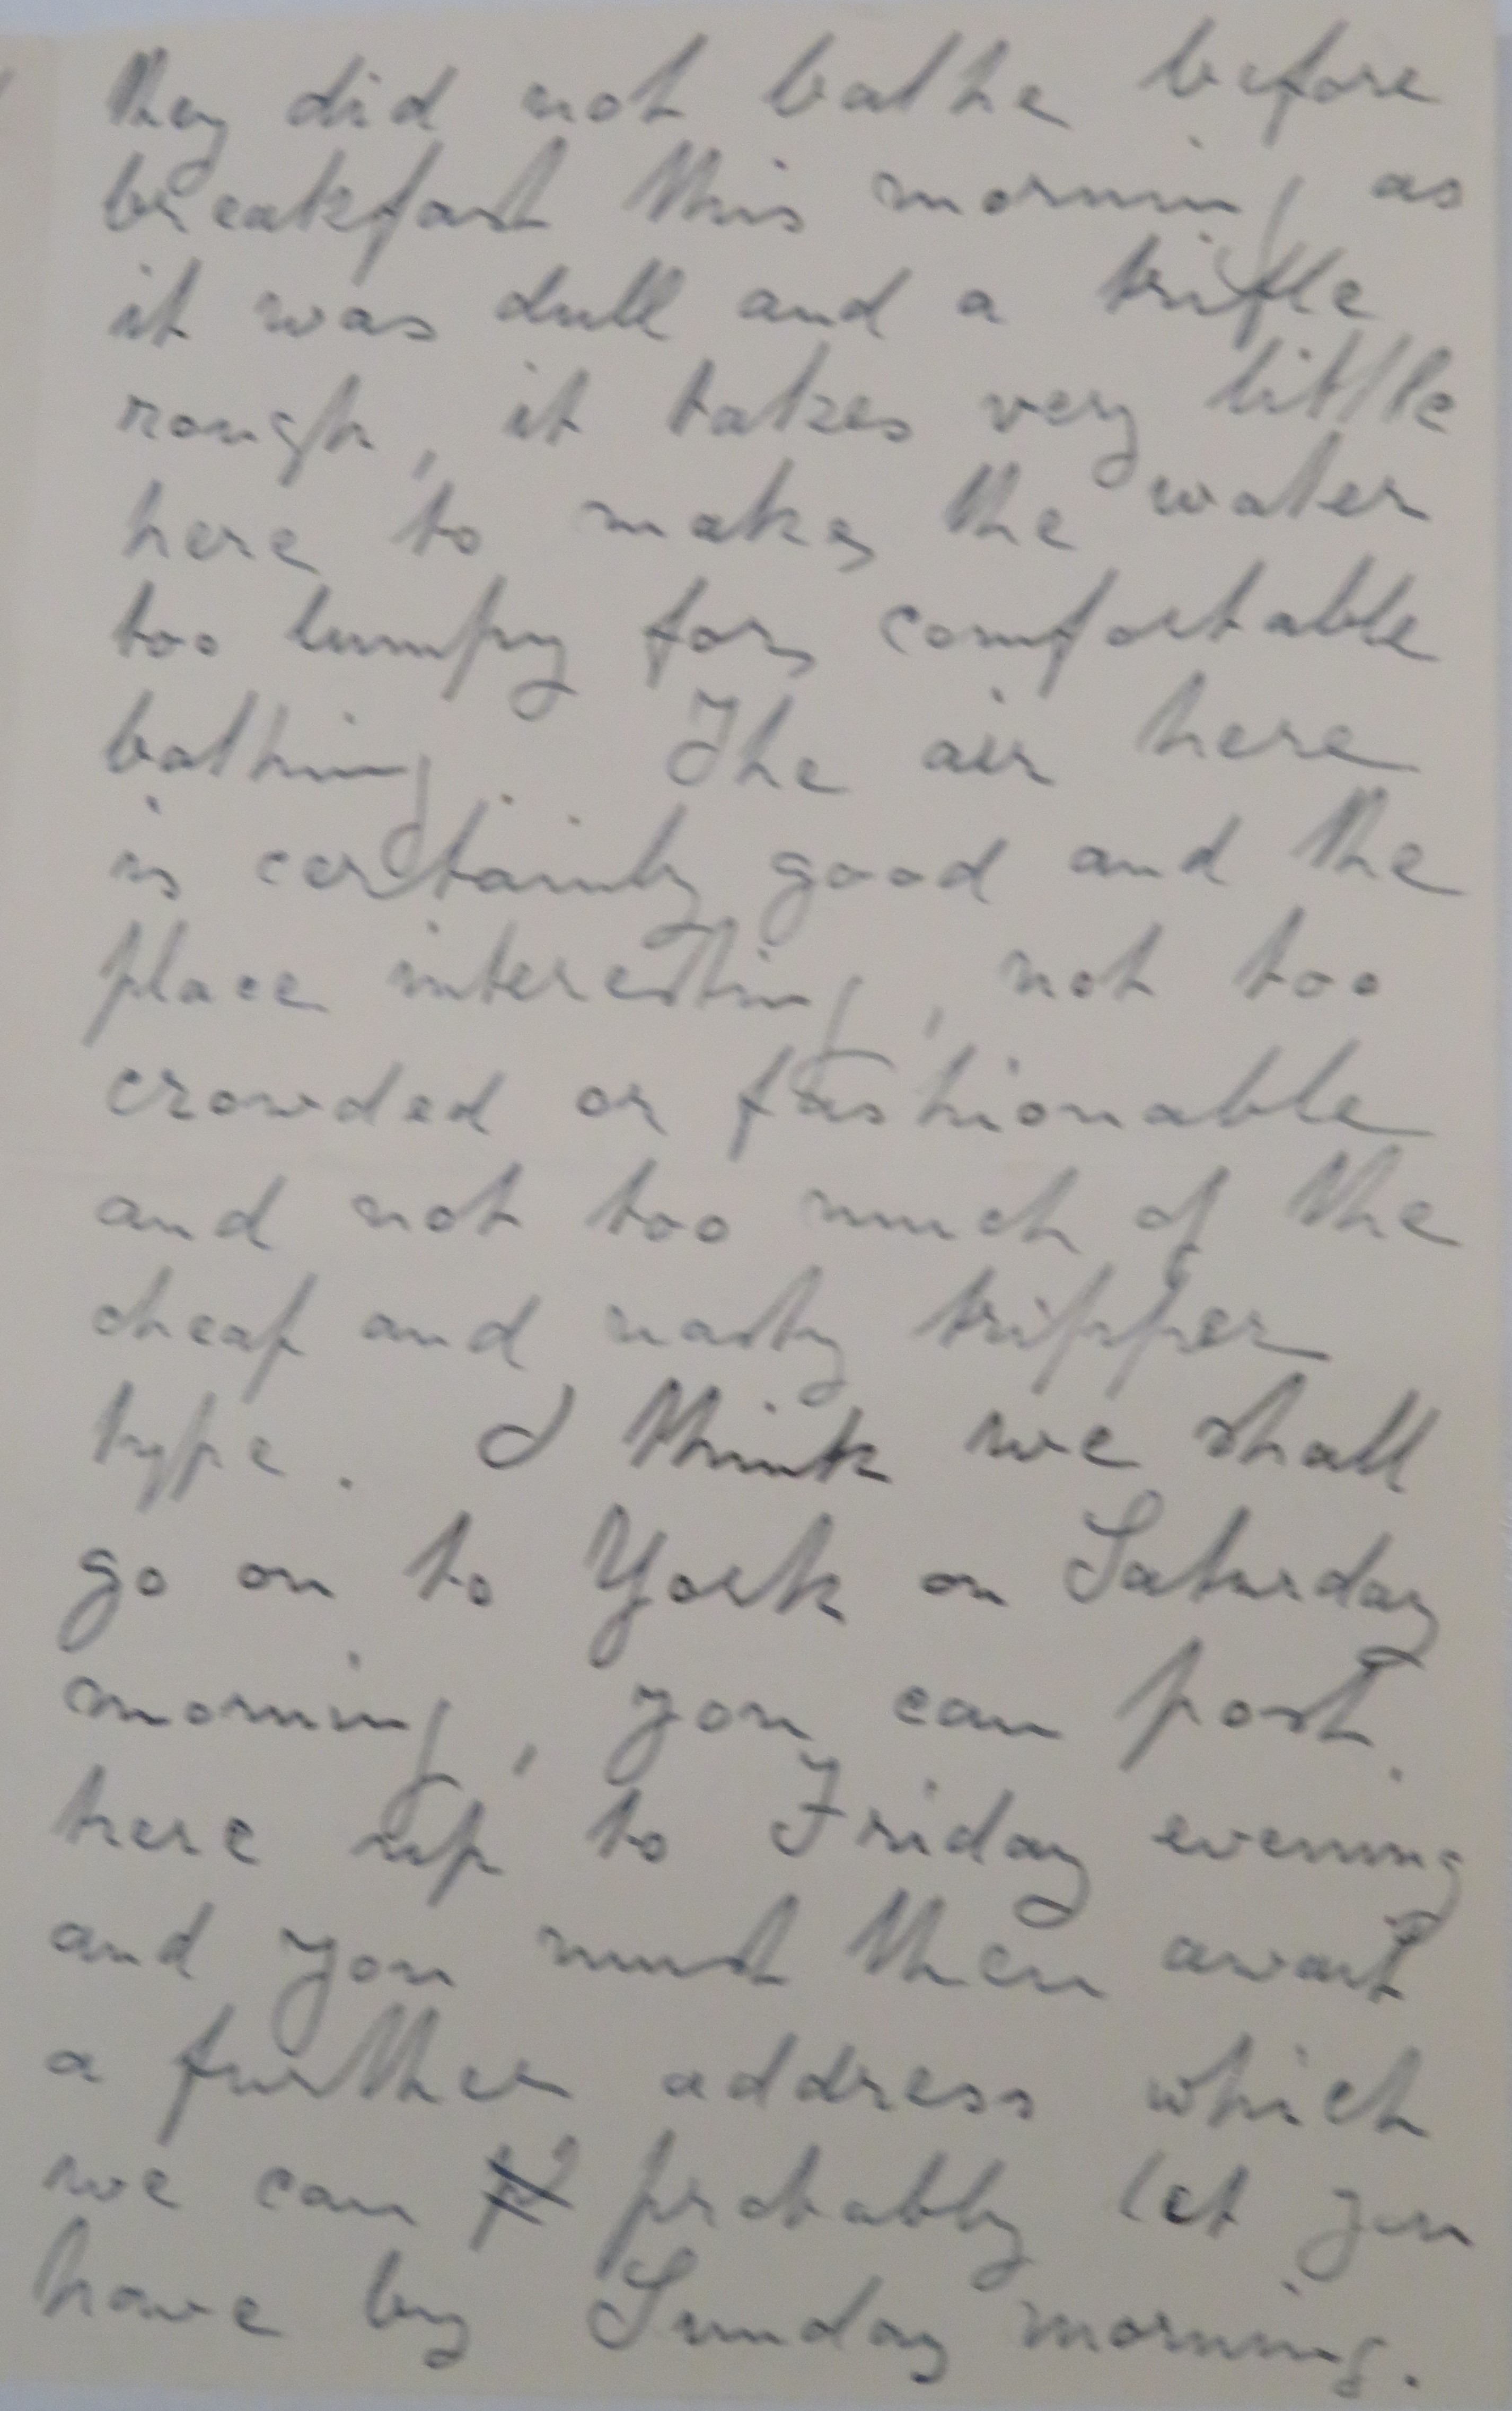 they did not bathe before
breakfast this morning as
it was dull and a trifle
rough, it takes very little
here to make the water
too lumpy for comfortable
bathing. The air here
is certainly good and the
place interesting, not too
crowded or fashionable
and not too much of the
cheap and nasty tripper
type. I think we shall
go on to York on Saturday
morning, you can post
here up to Friday evening
and you must then await
a further address which
we can probably let you
have by Sunday morning.